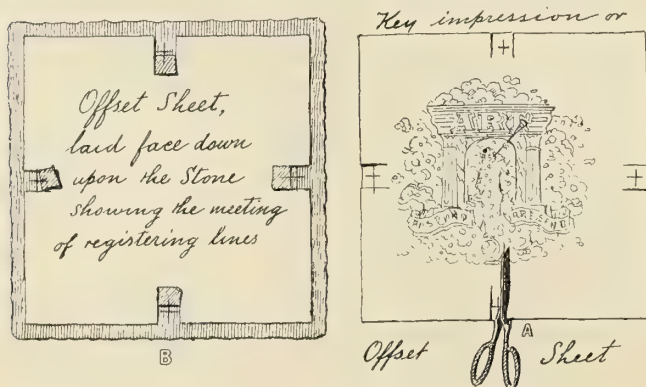 Offset Sheet,
laid face down
upon the Stone
showing the meeting
of registering lines
B
Key impression or
A
Offset Sheet